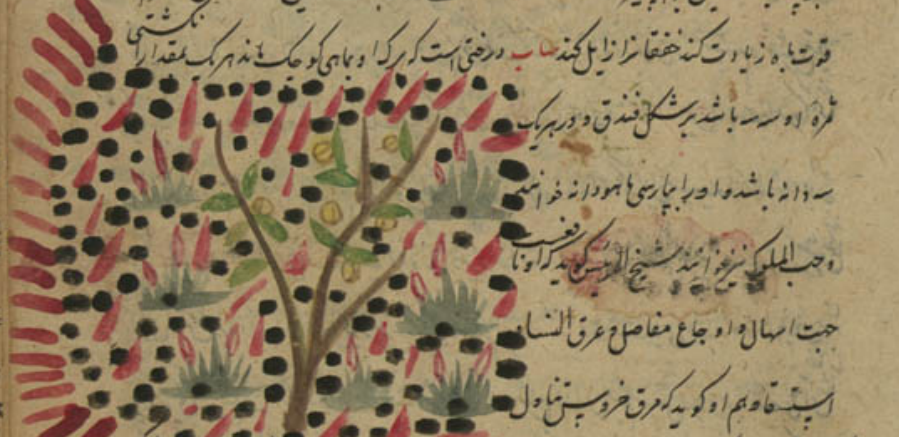 قوت باه زیادت کند خفقانرا زایل کند ماب درختی است که برک او بماهی کوچک ماند هر یک بمقدار
انکشتی
ثمره او سه سه باشد بر شکل فندق و در هر یک
سه دانه باشد و او را بپارسی ماهودانه خوانند
و حب الملوک نیز خوانند شیخ الرئیس کوید که او نافعست
جهت اسهال و اوجاع مفاصل و عرق النسا و
استسقا و هم او کوید که مرق خروس تناول